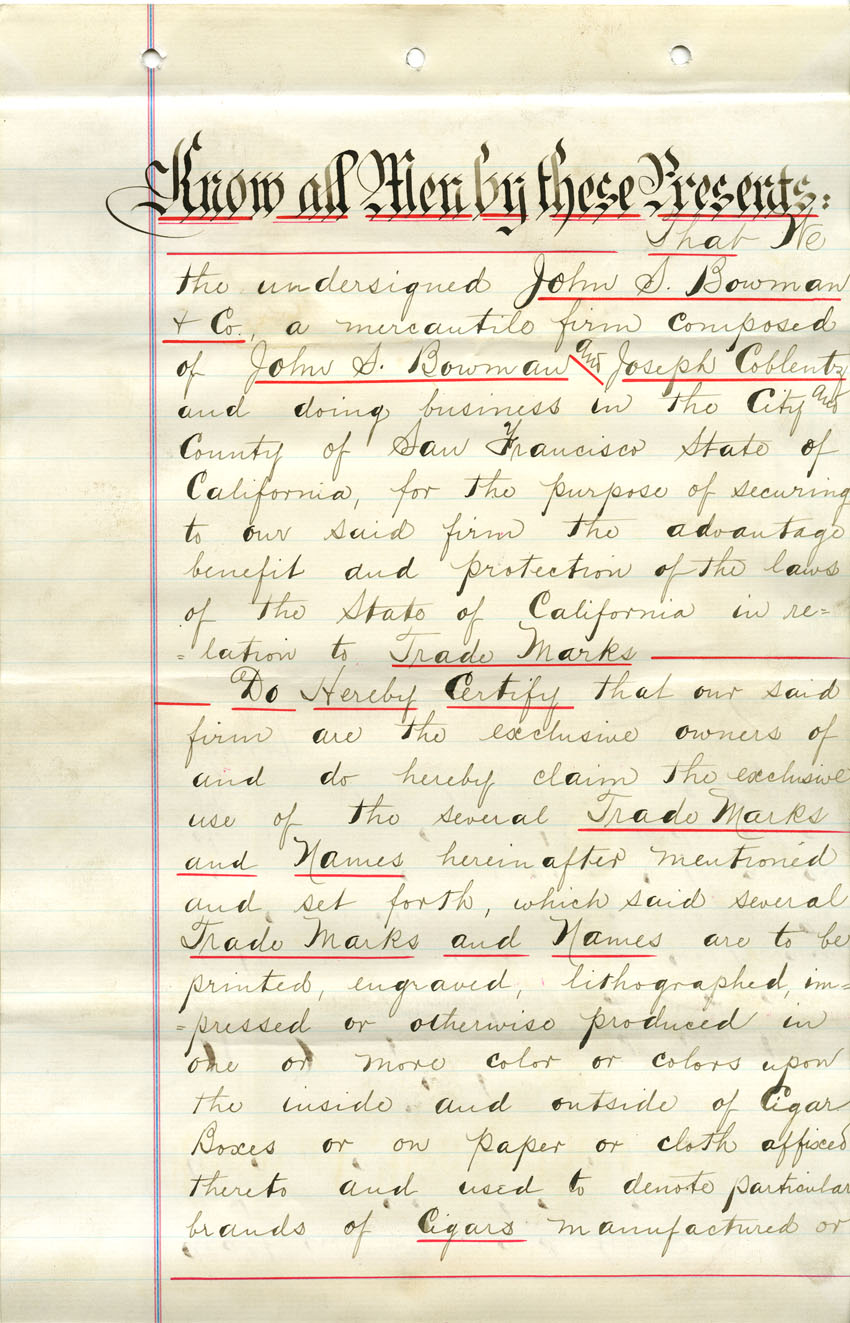 Know all Men by these Presents:
That We
the undersigned John S. Bowman
& Co., a mercantile firm composed
of John S. Bowman and Joseph Coblentz
and doing business in the City and
County of San Francisco State of
California, for the purpose of securing
to our said firm the advantage
benefit and protection of the laws
of the State of California in re=
=lation to Trade Marks
Do Hereby Certify that our said
firm are the exclusive owners of
and do hereby claim the exclusive
use of the several Trade Marks
and Names herein after mentioned
and set forth, which said several
Trade Marks and Names are to be
printed, engraved, lithographed, im=
=pressed or otherwise produced in
one or more color or colors upon
the inside and outside of Cigar
Boxes or on paper or cloth affixed
thereto and used to denote particular
brands of Cigars manufactured or